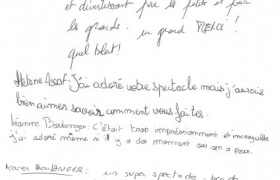 et divertissant pour les petits et pour
les grands. un grand MERCI!
quel talent!
Hélène Assaf: J'ai adoré votre spectacle mais j'aurais
bien aimer savoir comment vous faites.
Boulanger: C'était trop impressionnant et incroyable
j'ai adoré même si il y a des moment ou on a peur.
BOULANGER: un super spectacle,